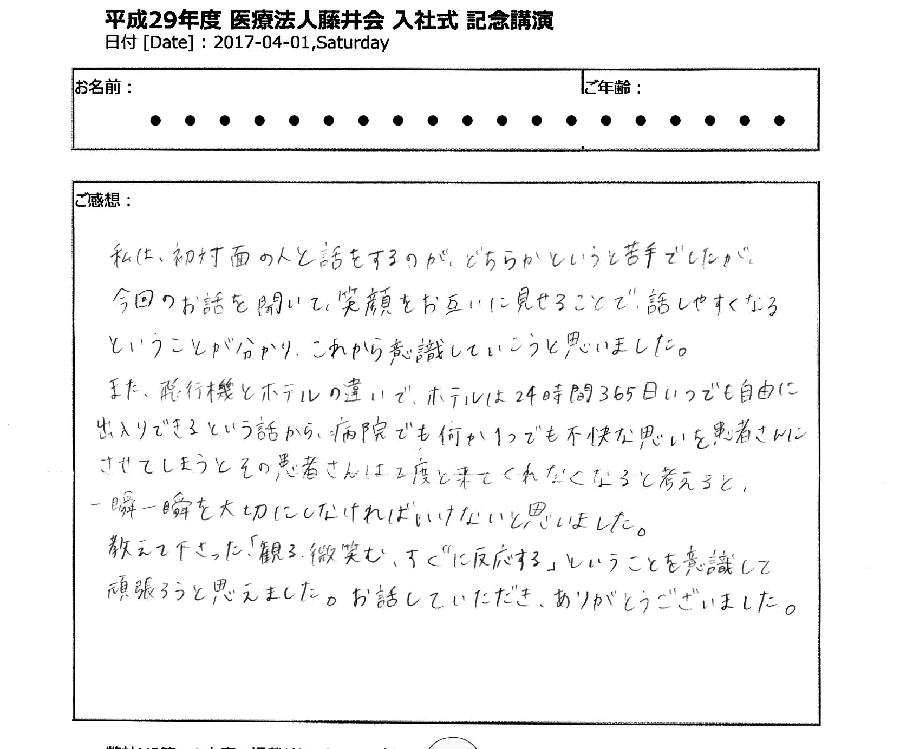 平成29年度 医療法人藤井会 入社式 記念講演
日付 [Date] : 2017-04-01,Saturday
お名前： ご年齢：
ご感想：
私は、初対面の人と話をするのが、どちらかというと苦手でしたが、
今回のお話を聞いて、笑顔をお互いに見せることで、話しやすくなる
ということが分かり、これから意識していこうと思いました。
また、飛行機とホテルの違いで、ホテルは24時間365日いつでも自由に
出入りできるという話から、病院でも何か1つでも不快な思いを患者さんに
させてしまうとその患者さんは2度と来てくれなくなると考えると、
一瞬一瞬を大切にしなければいけないと思いました。
教えて下さった「観る、微笑む、すぐに反応する」ということを意識して
頑張ろうと思えました。お話していただき、ありがとうございました。